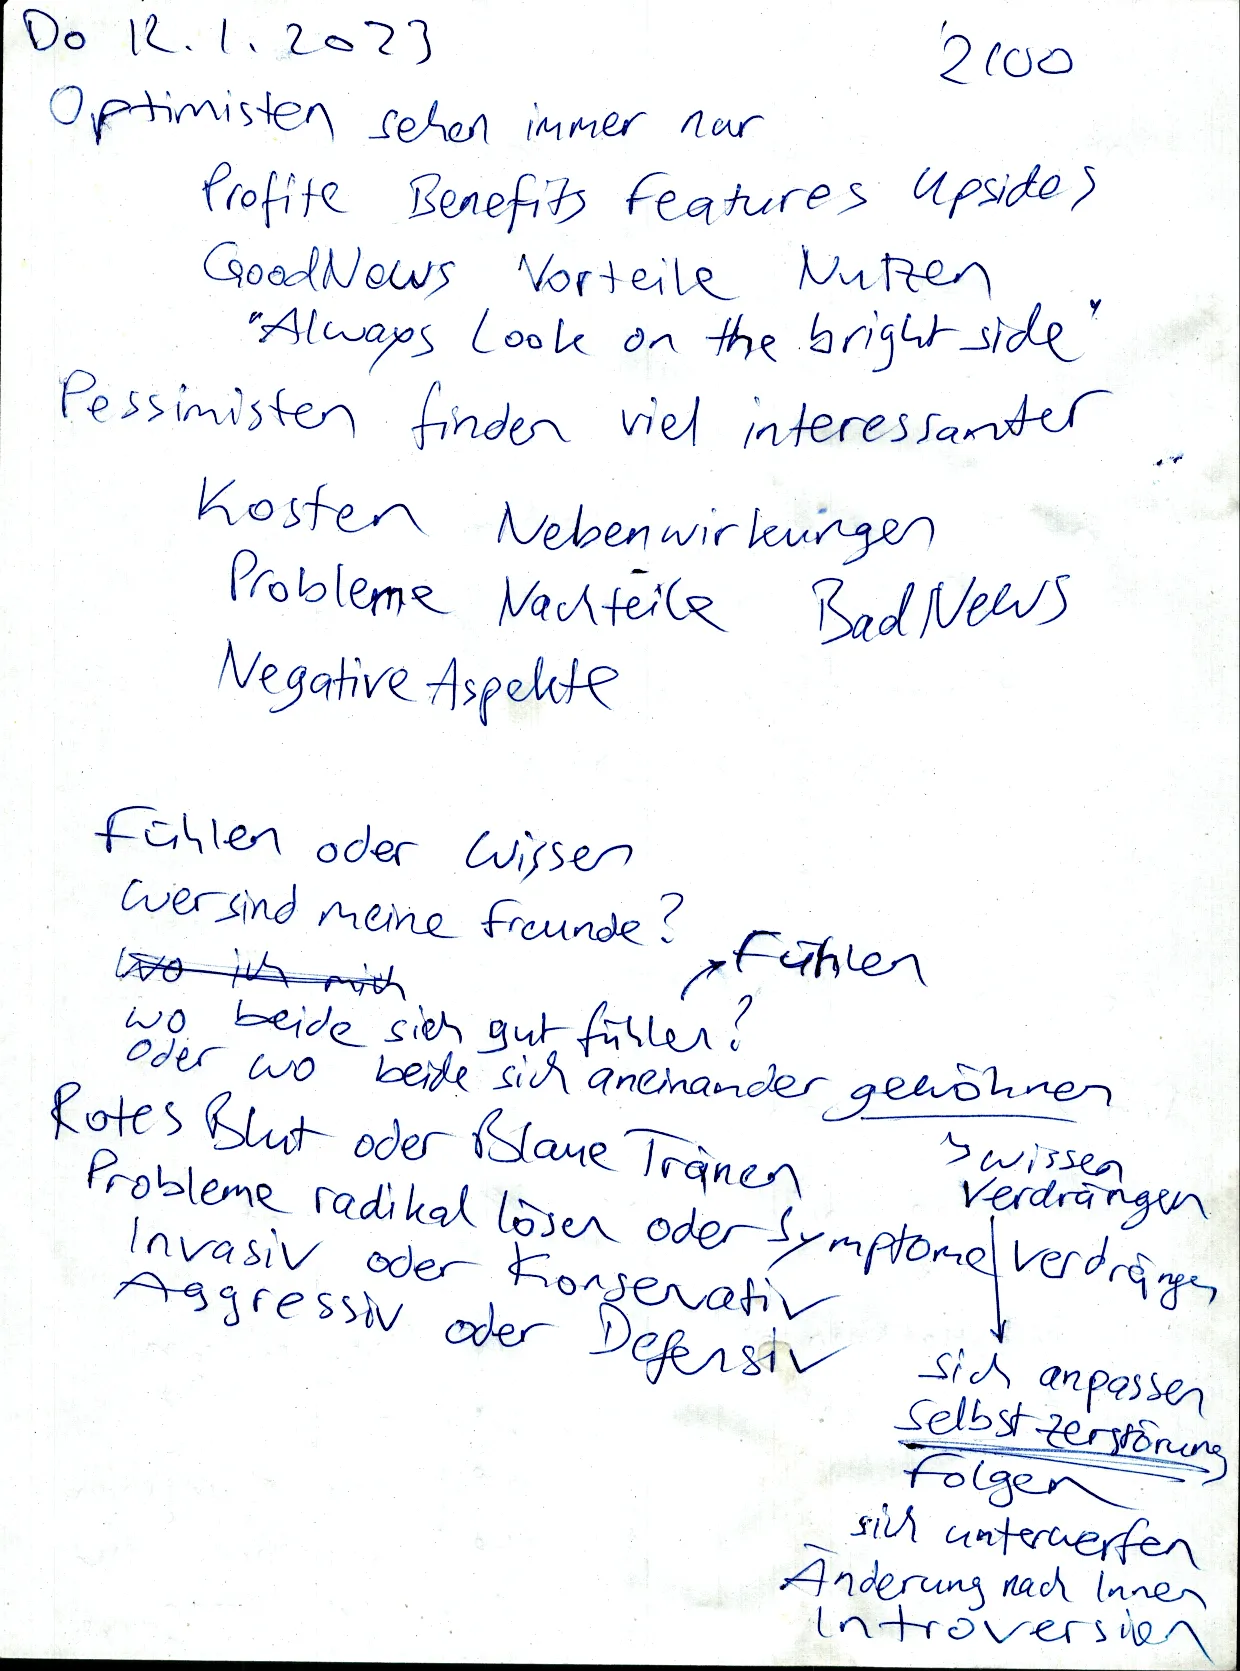 Do 12.1.2023 2100
Optimisten sehen immer nur
Profite Benefits Features Upsides
GoodNews Vorteile Nutzen
"Always Look on the bright side"
Pessimisten finden viel interessanter
Kosten Nebenwirkungen
Probleme Nachteile BadNews
Negative Aspekte
Fühlen oder Wissen
Wer sind meine Freunde?
Wo ich mich
→ Fühlen
wo beide sich gut fühlen?
Oder wo beide sich aneinander gewöhnen
Rotes Blut oder Blaue Tränen
→ wissen
verdrängen
Probleme radikal lösen oder Symptome verdrängen
Invasiv oder Konservativ
Aggressiv oder Defensiv
sich anpassen
Selbstzerstörung
Folgen
sich unterwerfen
Änderung nach Innen
Introversion